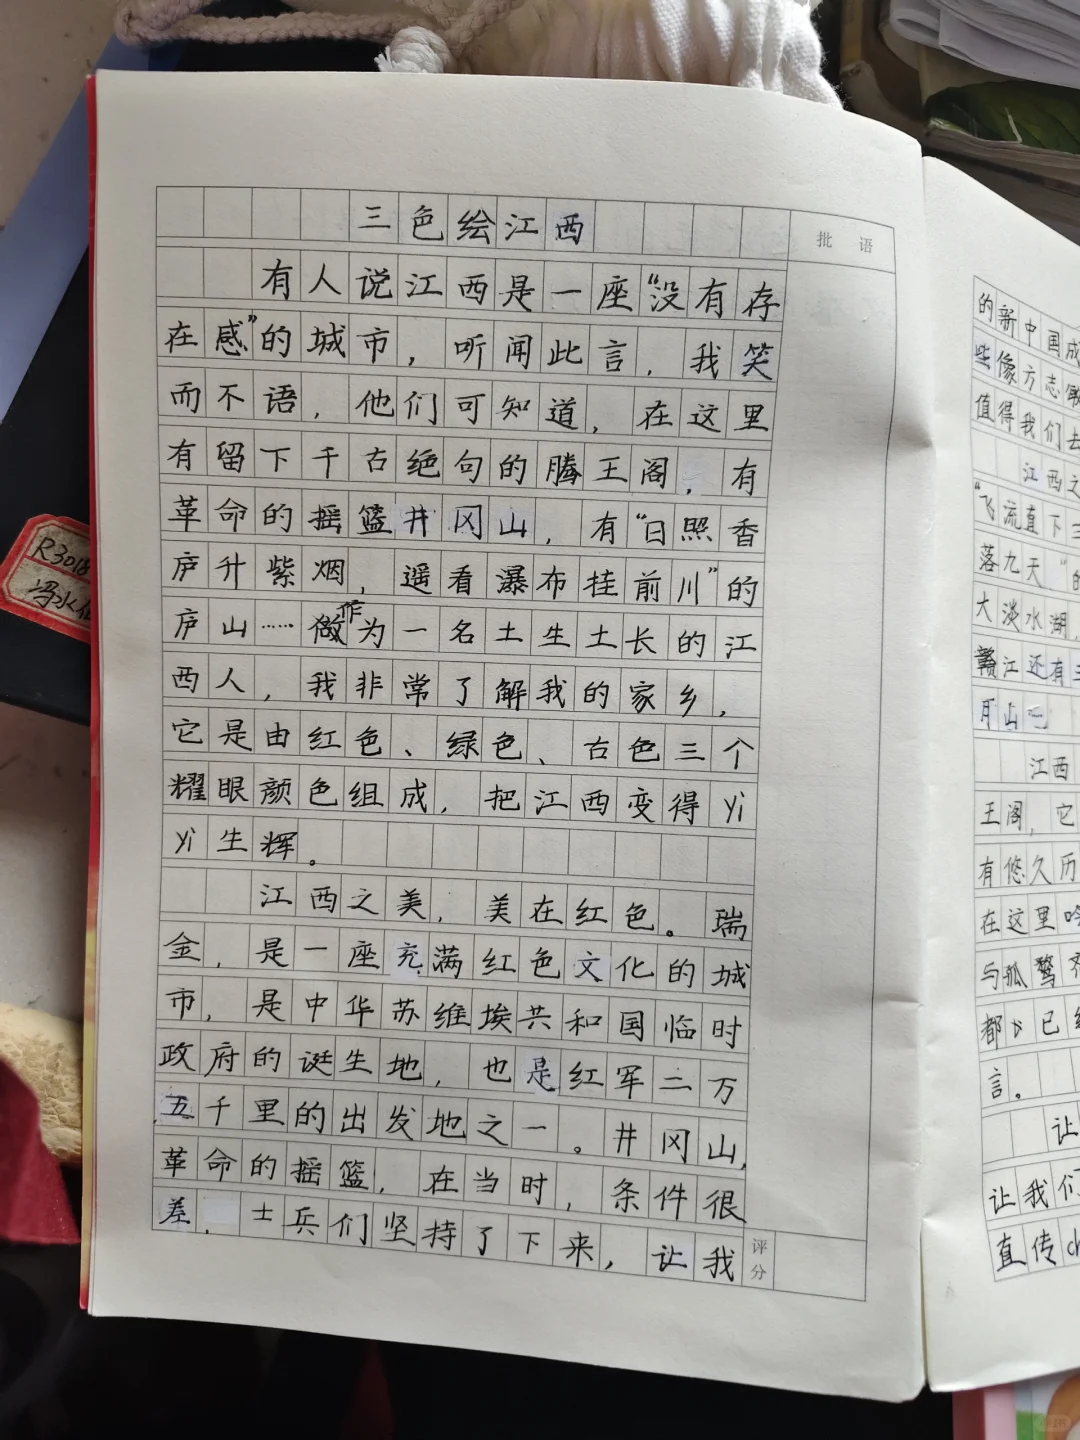 三色绘江西
批语
有人说江西是一座“没有存
在感”的城市，听闻此言，我笑
而不语，他们可知道，在这里
有留下千古绝句的腾王阁，有
革命的摇篮井冈山，有“日照香
庐升紫烟，遥看瀑布挂前川”的
庐山……做作为一名土生土长的江
西人，我非常了解我的家乡，
它是由红色、绿色、古色三个
耀眼颜色组成，把江西变得yi
yi生辉。
江西之美，美在红色。瑞
金，是一座充满红色文化的城
市，是中华苏维埃共和国临时
政府的诞生地，也是红军二万
五千里的出发地之一。井冈山，
革命的摇篮，在当时，条件很
差，士兵们坚持了下来，让我
评分
的新中国成
些像方志敏
值得我们去
江西之
“飞流直下三
落九天”的
大淡水湖，
赣江还有三
月山
江西
王阁，它
有悠久历
在这里吟
与孤鹜齐
都已经
言。
让
让我们
直传ch
R3018
冯水仙